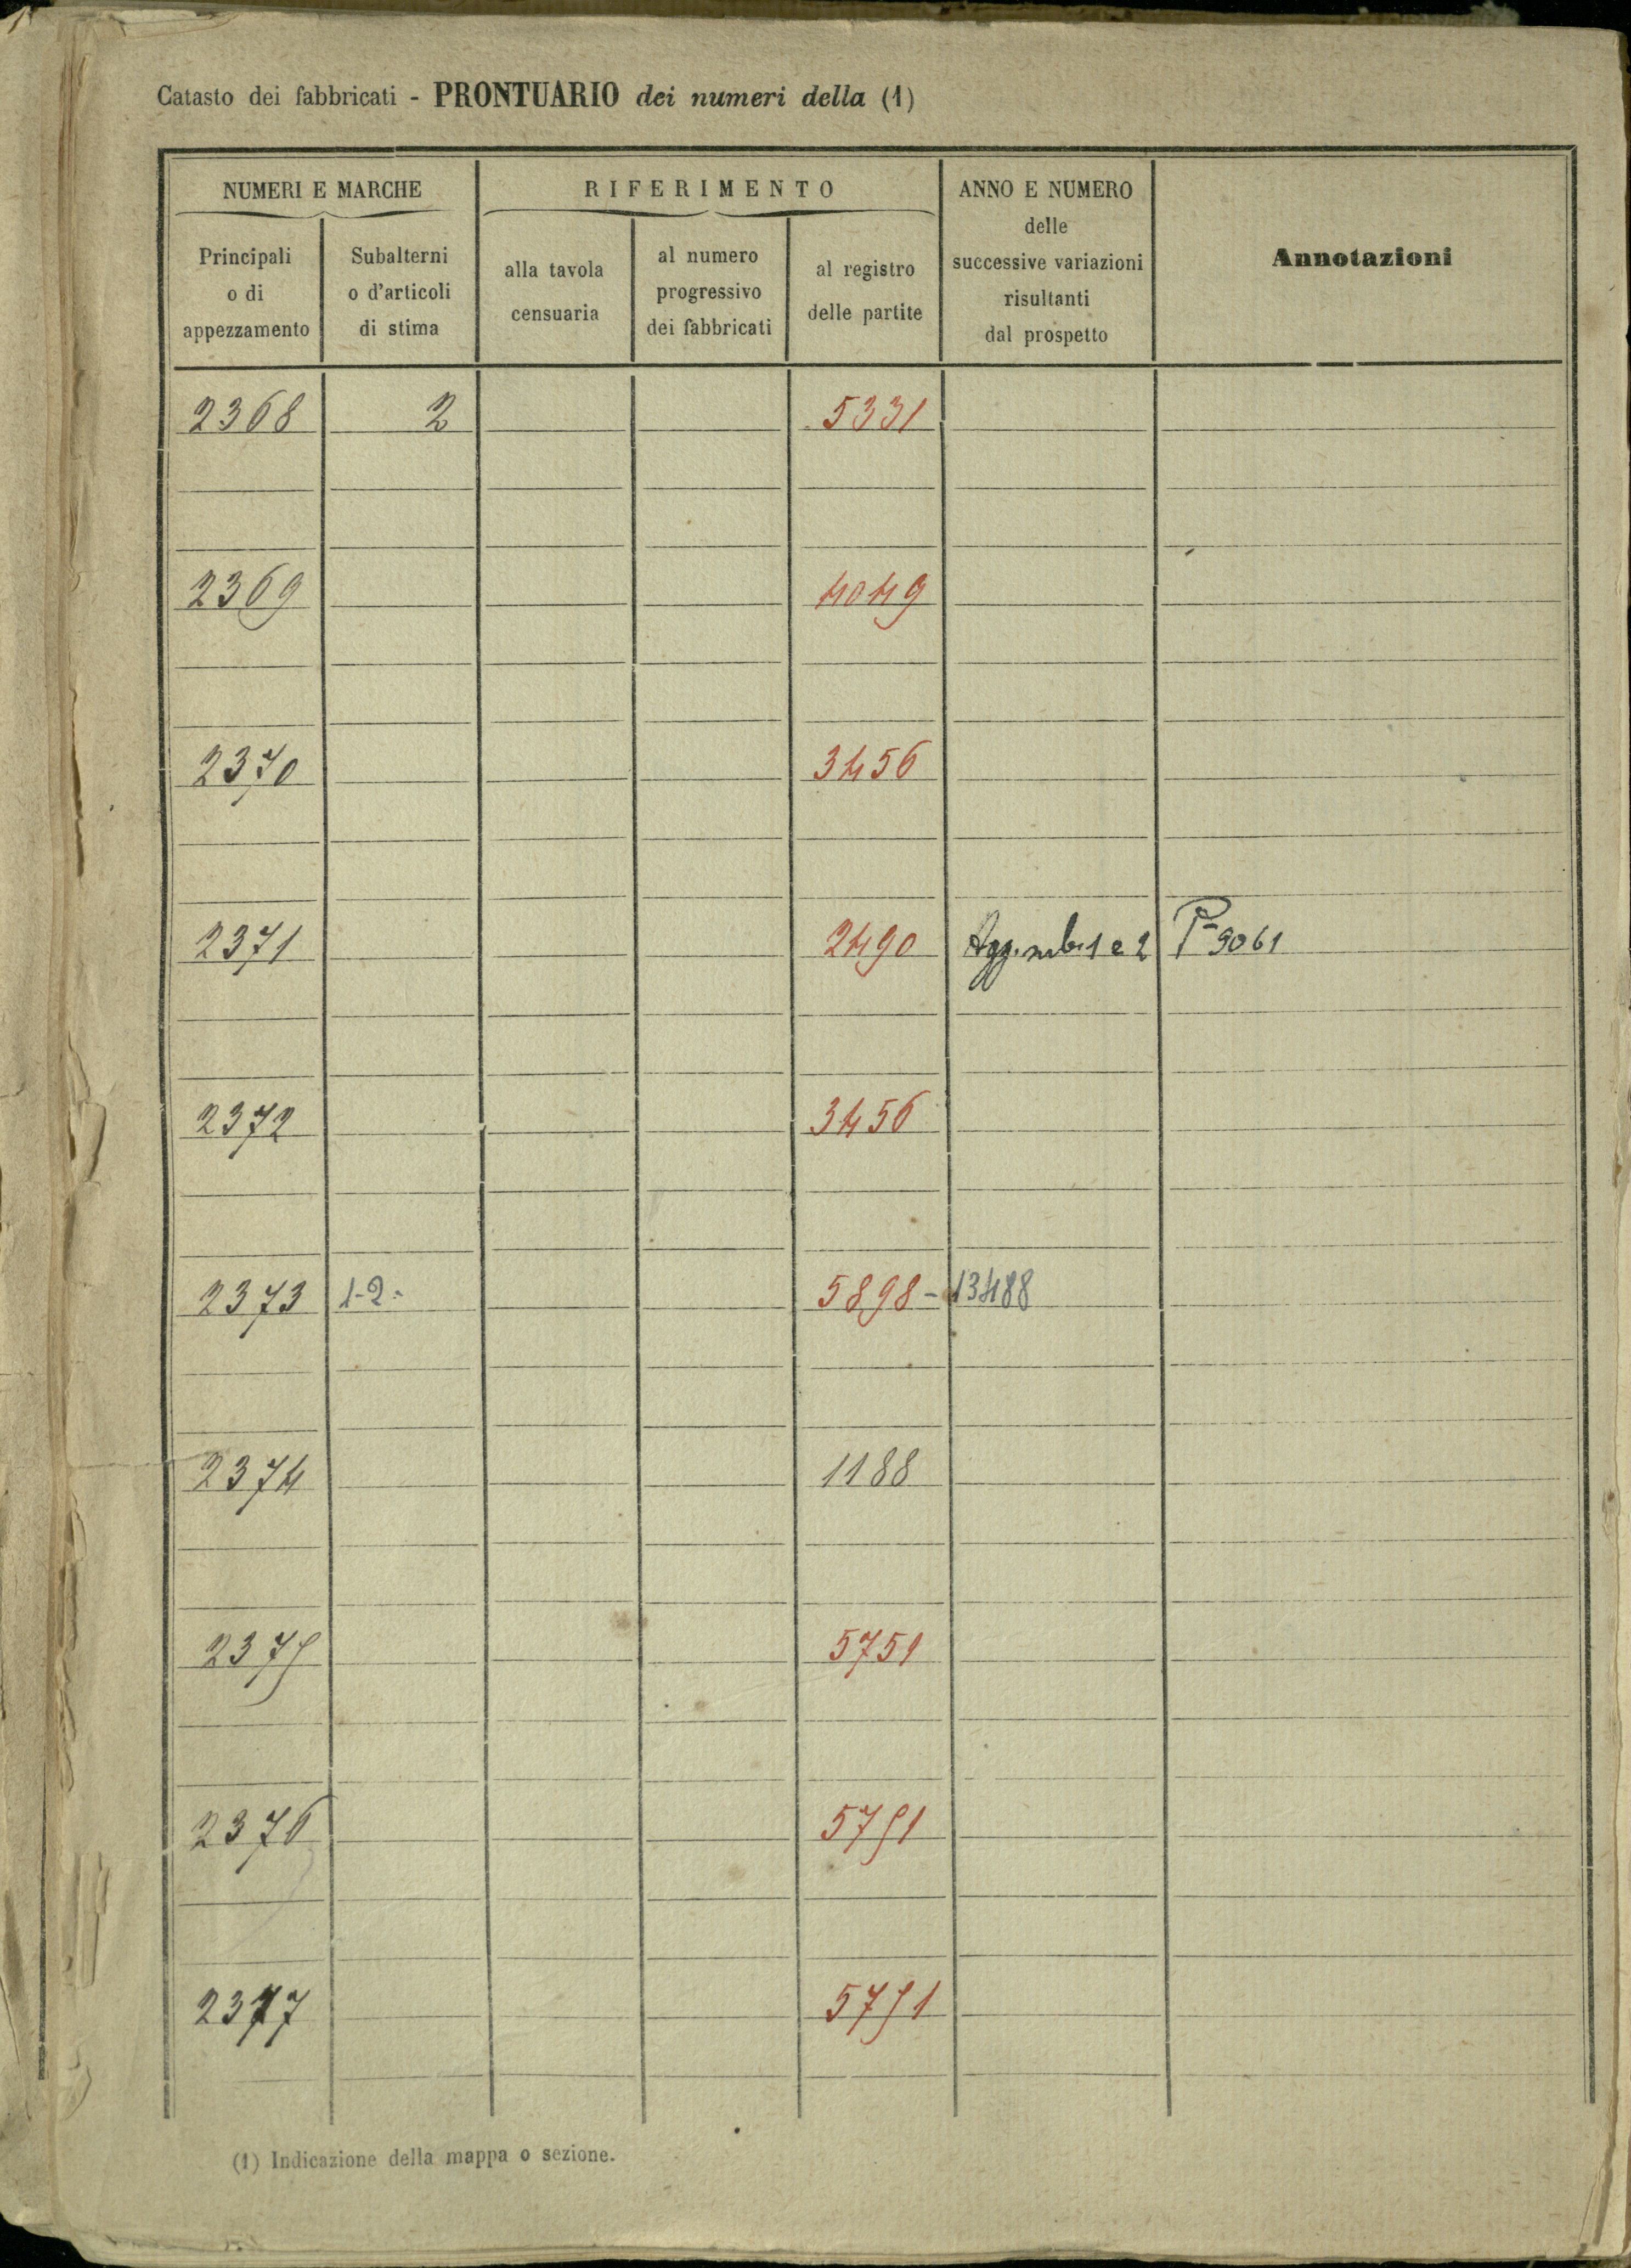 Catasto dei fabbricati - PRONTUARIO dei numeri della (1)
NUMERI E MARCHE
RIFERIMENTO
ANNO E NUMERO
delle
successive variazioni
risultanti
dal prospetto
Annotazioni
Principali
o di
appezzamento
Subalterni
o d'articoli
di stima
alla tavola
censuaria
al numero
progressivo
dei fabbricati
al registro
delle partite
2368 2 5331
2369 4049
2370 3456
2371 2490 Agg. sub. 1 e 2 Pª 9061
2372 3456
2373 1-2- 5898 - 13488
2374 1188
2375 5751
2376 5751
2377 5751
(1) Indicazione della mappa o sezione.